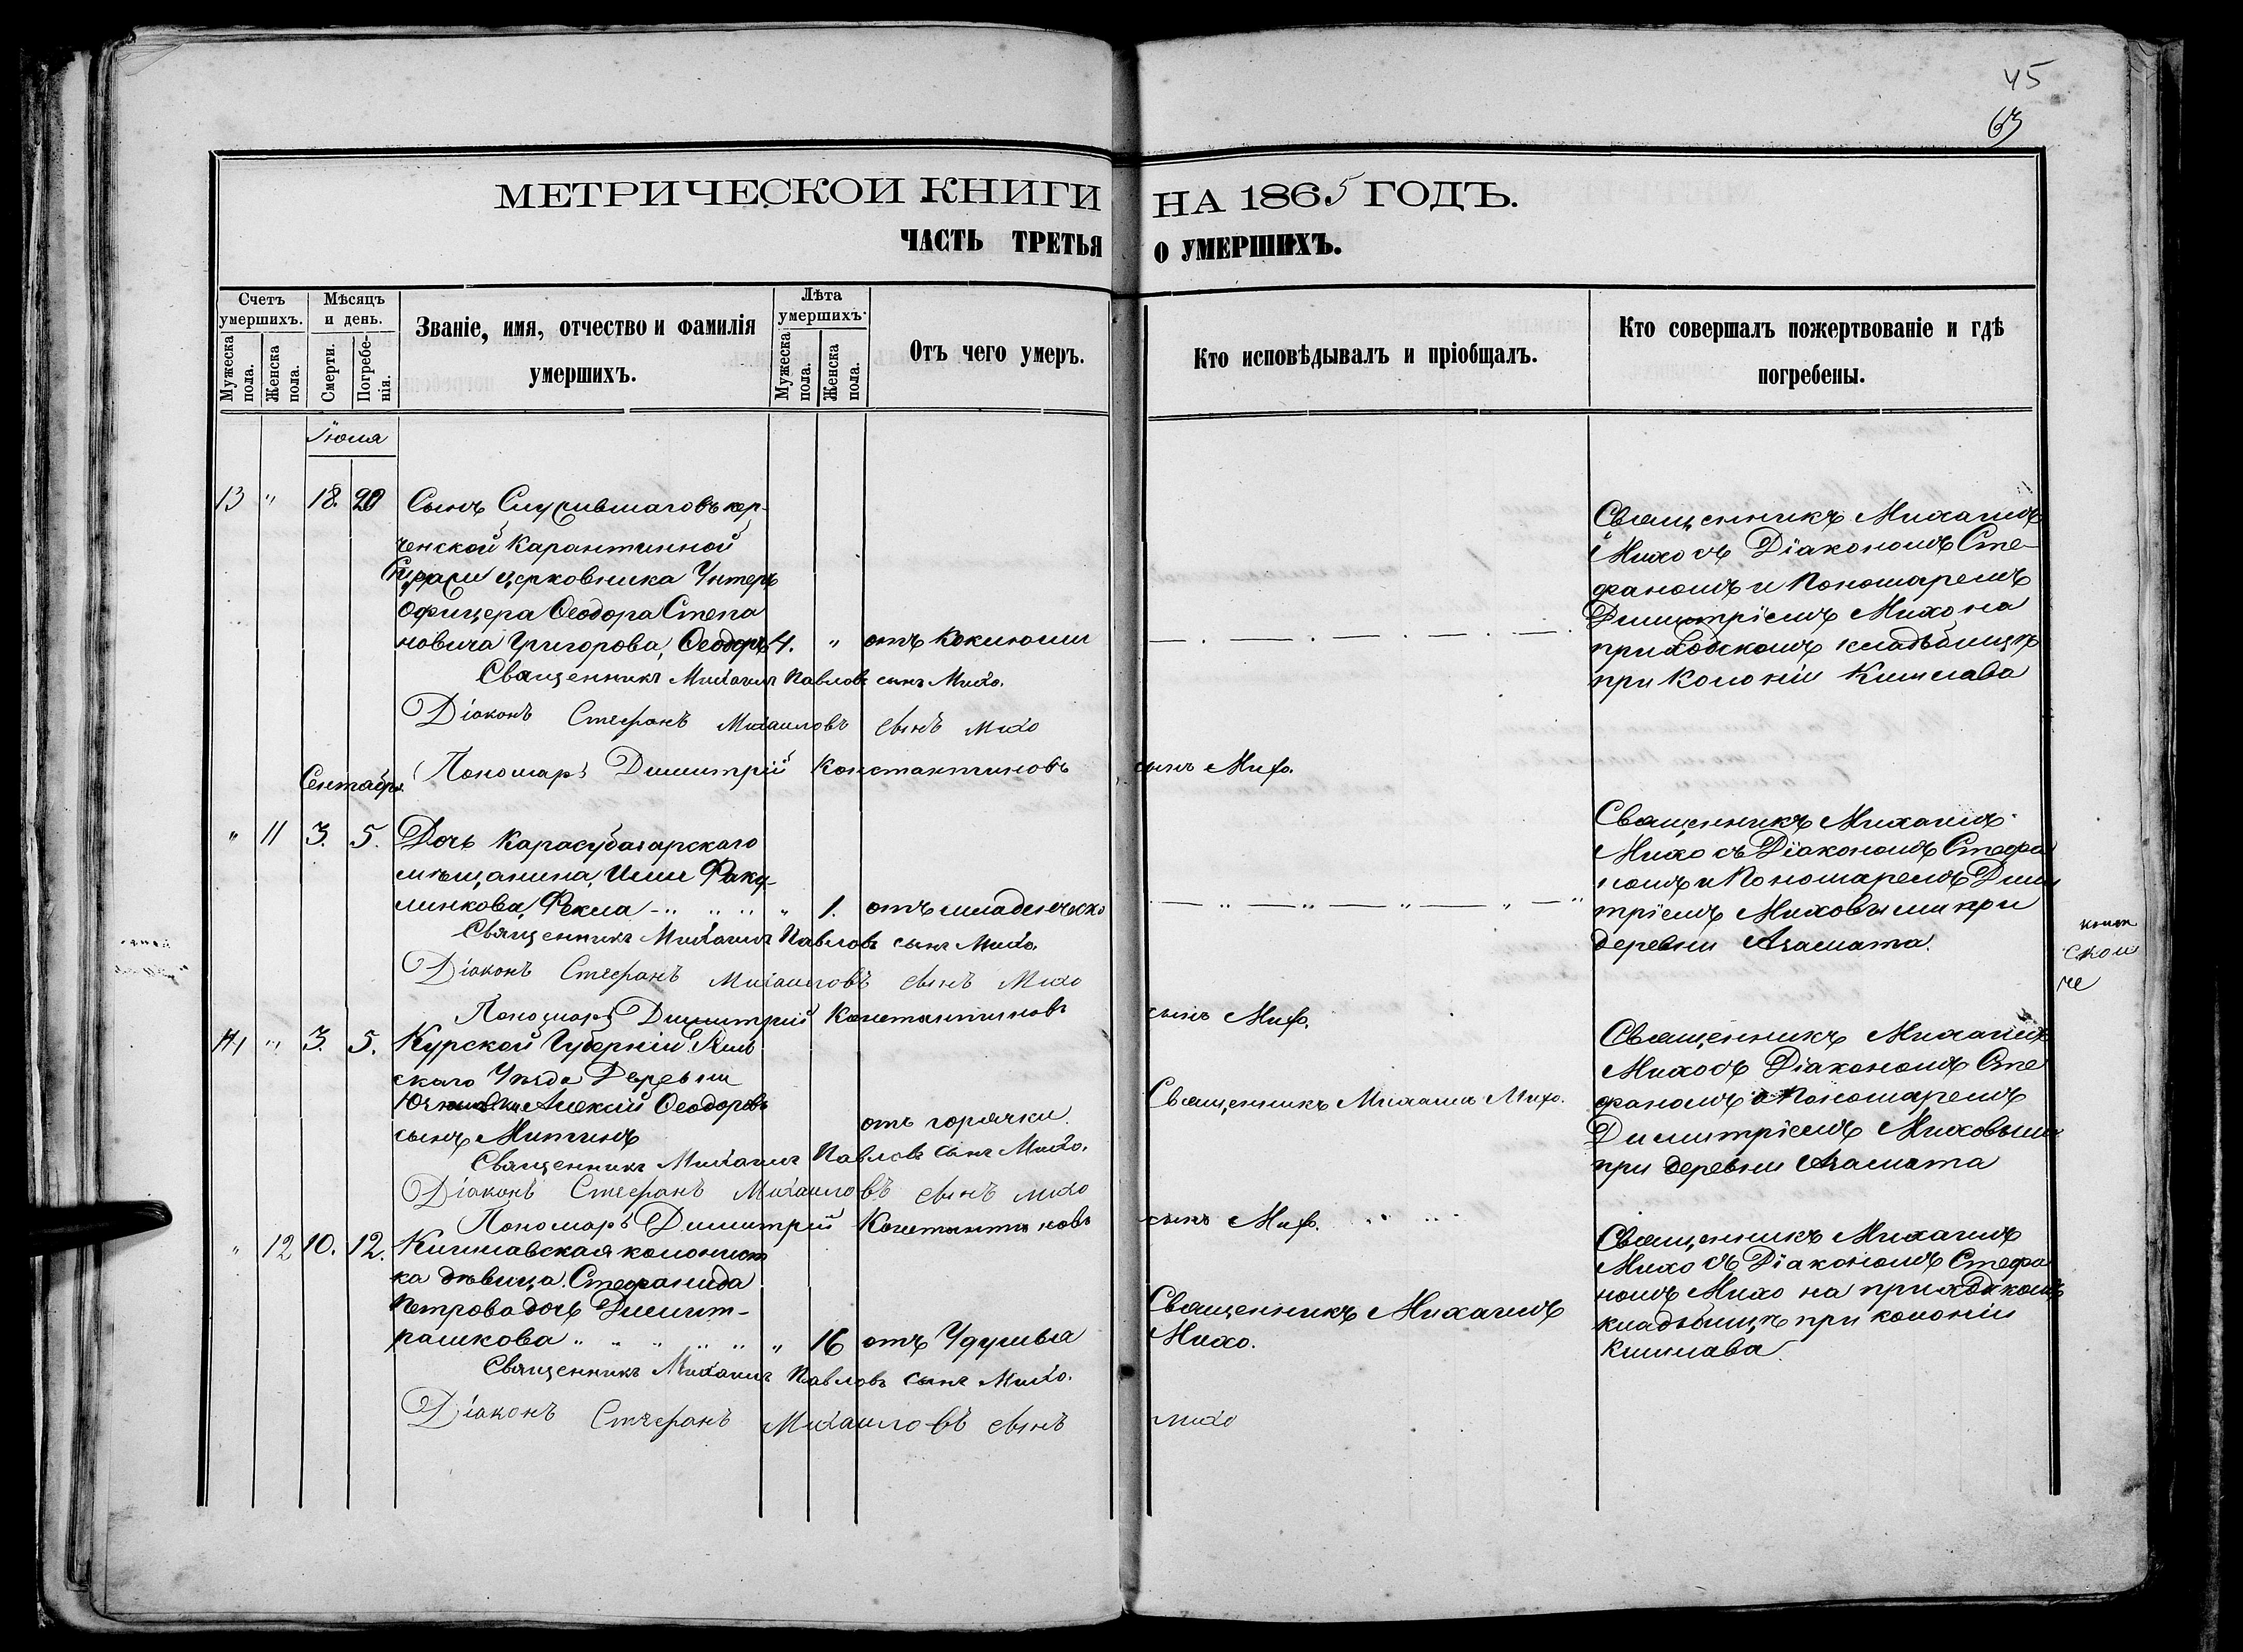 45
63
МЕТРИЧЕСКОИ КНИГИ НА 1865 ГОДЪ.
ЧАСТЬ ТРЕТЬЯ О УМЕРШИХЪ.
Счетъ умершихъ.
Мужеска пола.
Женска пола.
Мѣсяцъ и день.
Смерти.
Погребенія.
Званіе, имя, отчество и фамилія
умершихъ.
Лѣта умершихъ.
Мужеска пола.
Женска пола.
Отъ чего умеръ.
Кто исповѣдывалъ и пріобщалъ.
Кто совершалъ пожертвованіе и гдѣ
погребены.
13 " 18. 20 Сынъ Служившаго въ кер-
ченской Карантинной
церковника Унтеръ
Офицера Ѳеодора Степа
новича Григорова, Ѳеодоръ 4. " отъ Коклюши
Священникъ Михаилъ
Михо съ Діакономъ Сте-
фаномъ и Пономаремъ
Димитріемъ Михо на
приходскомъ кладбищѣ
при Колоніи Кишлава
Священникъ Михаилъ Павловъ сынъ Михо.
Діаконъ Стефанъ Михаиловъ сынъ Михо
Пономаръ Димитрій Константиновъ сынъ Михо.
Сентабрь
" 11 3. 5. Дочь Карасубазарскаго
мѣщанина, Ильи Факу-
линкова, Фекла " 1. отъ младенческо
Священникъ Михаилъ
Михо съ Діакономъ Стефа
номъ и Пономаремъ Дими
тріемъ Миховыми при
деревни Азамата.
Священникъ Михаилъ Павловъ сынъ Михо.
Діаконъ Стефанъ Михаиловъ сынъ Михо
Пономарь Димитрій Константиновъ сынъ Михо.
14 " 3. 5. Курской Губерніи
скаго Уѣзда Деревни
Алексій Ѳеодоровъ
сынъ Митинъ отъ горячки.
Священникъ Михаилъ Михо.
Священникъ Михаилъ
Михо съ Діакономъ Сте
фаномъ и Пономаремъ
Димитріемъ Миховыми
при деревни Азамата
Священникъ Михаилъ Павловъ сынъ Михо.
Діаконъ Стефанъ Михаиловъ сынъ Михо
Пономаръ Димитрій Константиновъ сынъ Михо.
" 12 10. 12. Кишлавская колонист
ка дѣвица Стефанида
Петрова дочь Димит-
рашкова " 16 отъ Удушья
Священникъ Михаилъ
Михо.
Священникъ Михаилъ
Михо съ Діакономъ Стефа
номъ Михо на приходскомъ
кладбищѣ при колоніи
Кишлава.
Священникъ Михаилъ Павловъ сынъ Михо.
Діаконъ Стефанъ Михаиловъ сынъ Михо